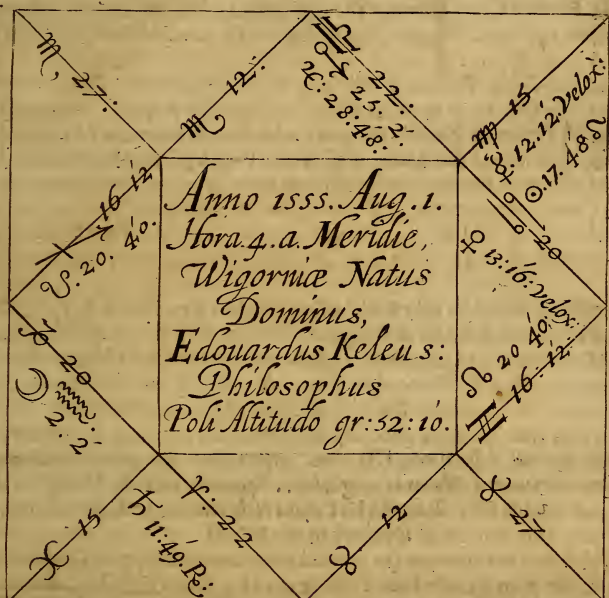 ♏, 27:
♏ 12:
♎ 22:
♂ 25. 2.
♃: 28:48:
♍ 15
☿. 12.12. velox:
☉. 17. 48 ♌
♐ 16 12
☋. 20. 40.
Anno 1555. Aug. 1.
Hora. 4. a. Meridie,
Wigorniæ Natus
Dominus,
Edouardus Keleus:
Philosophus
Poli Altitudo gr: 52: 10.
♋ 20
♀ 13:16: velox:
☊ 20 40:
♊ 16:12:
♑ 20
☽ ♒
2. 2
♓ 15
♄ 11:49. Re:
♈: 22
♉ 12
♉ 27